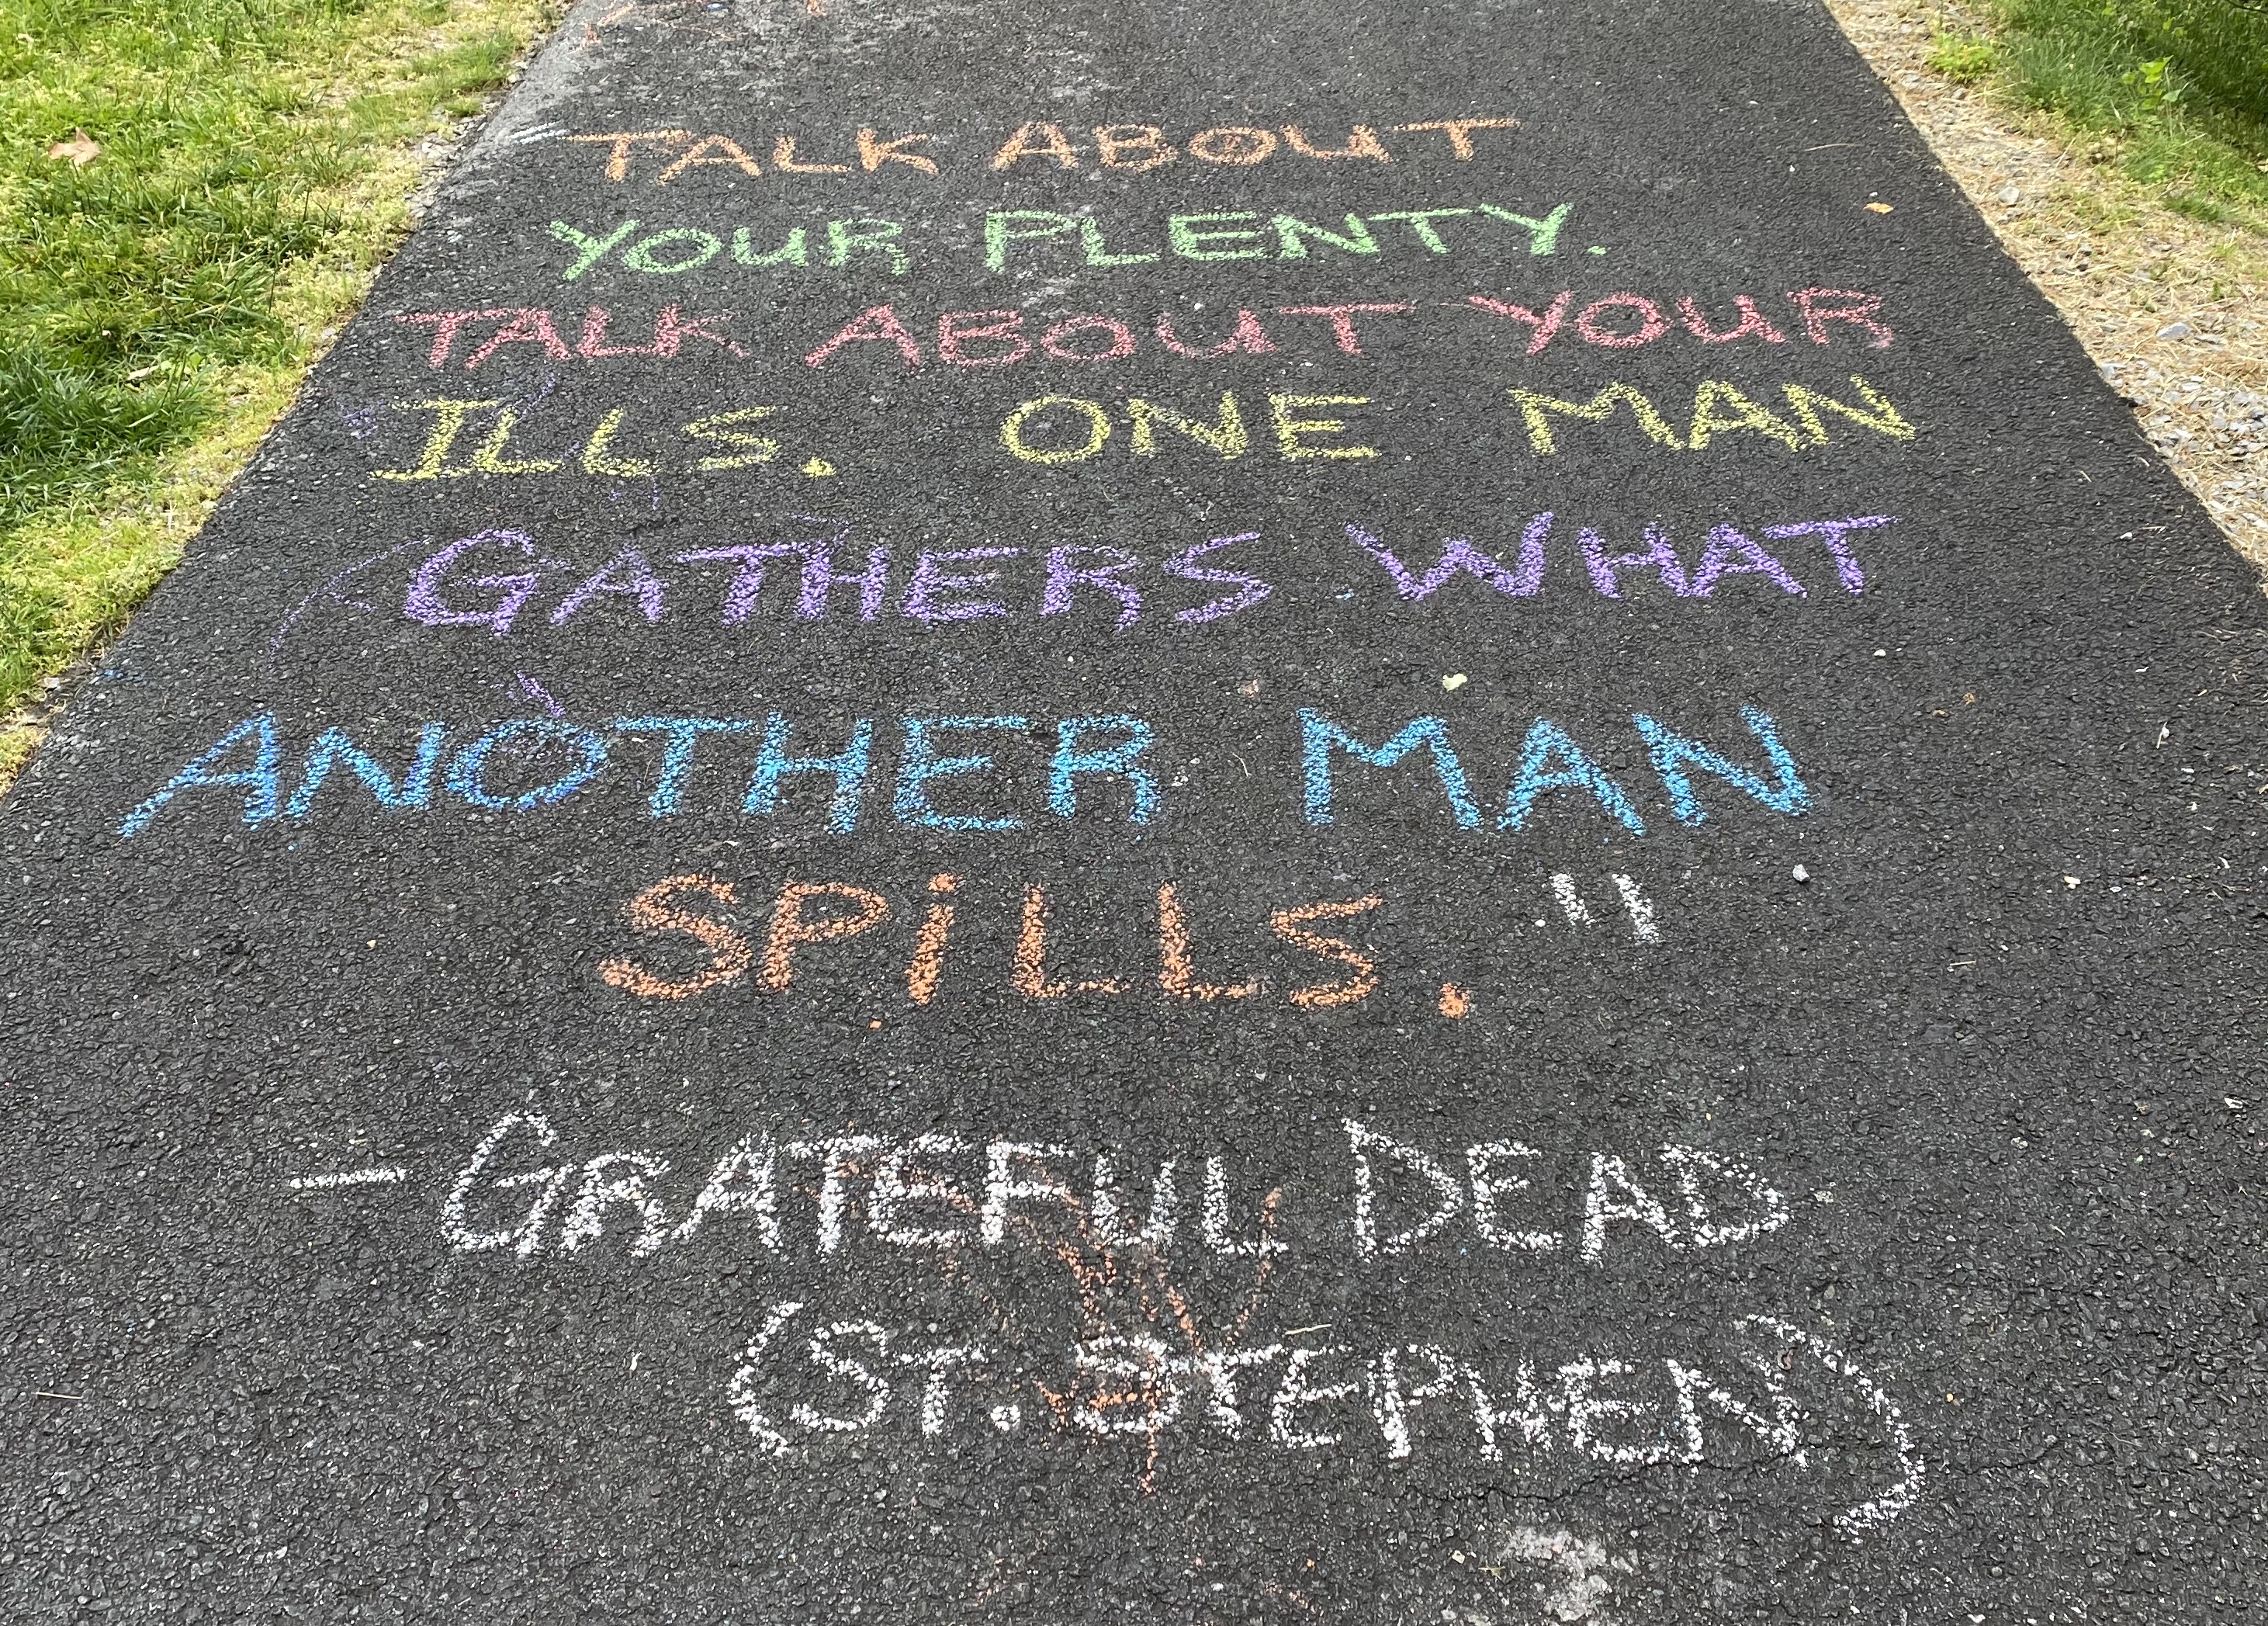 "TALK ABOUT
YOUR PLENTY.
TALK ABOUT YOUR
ILLS. ONE MAN
GATHERS WHAT
ANOTHER MAN
SPiLLS."
-GRATEFUL DEAD
(ST. STEPHEN)